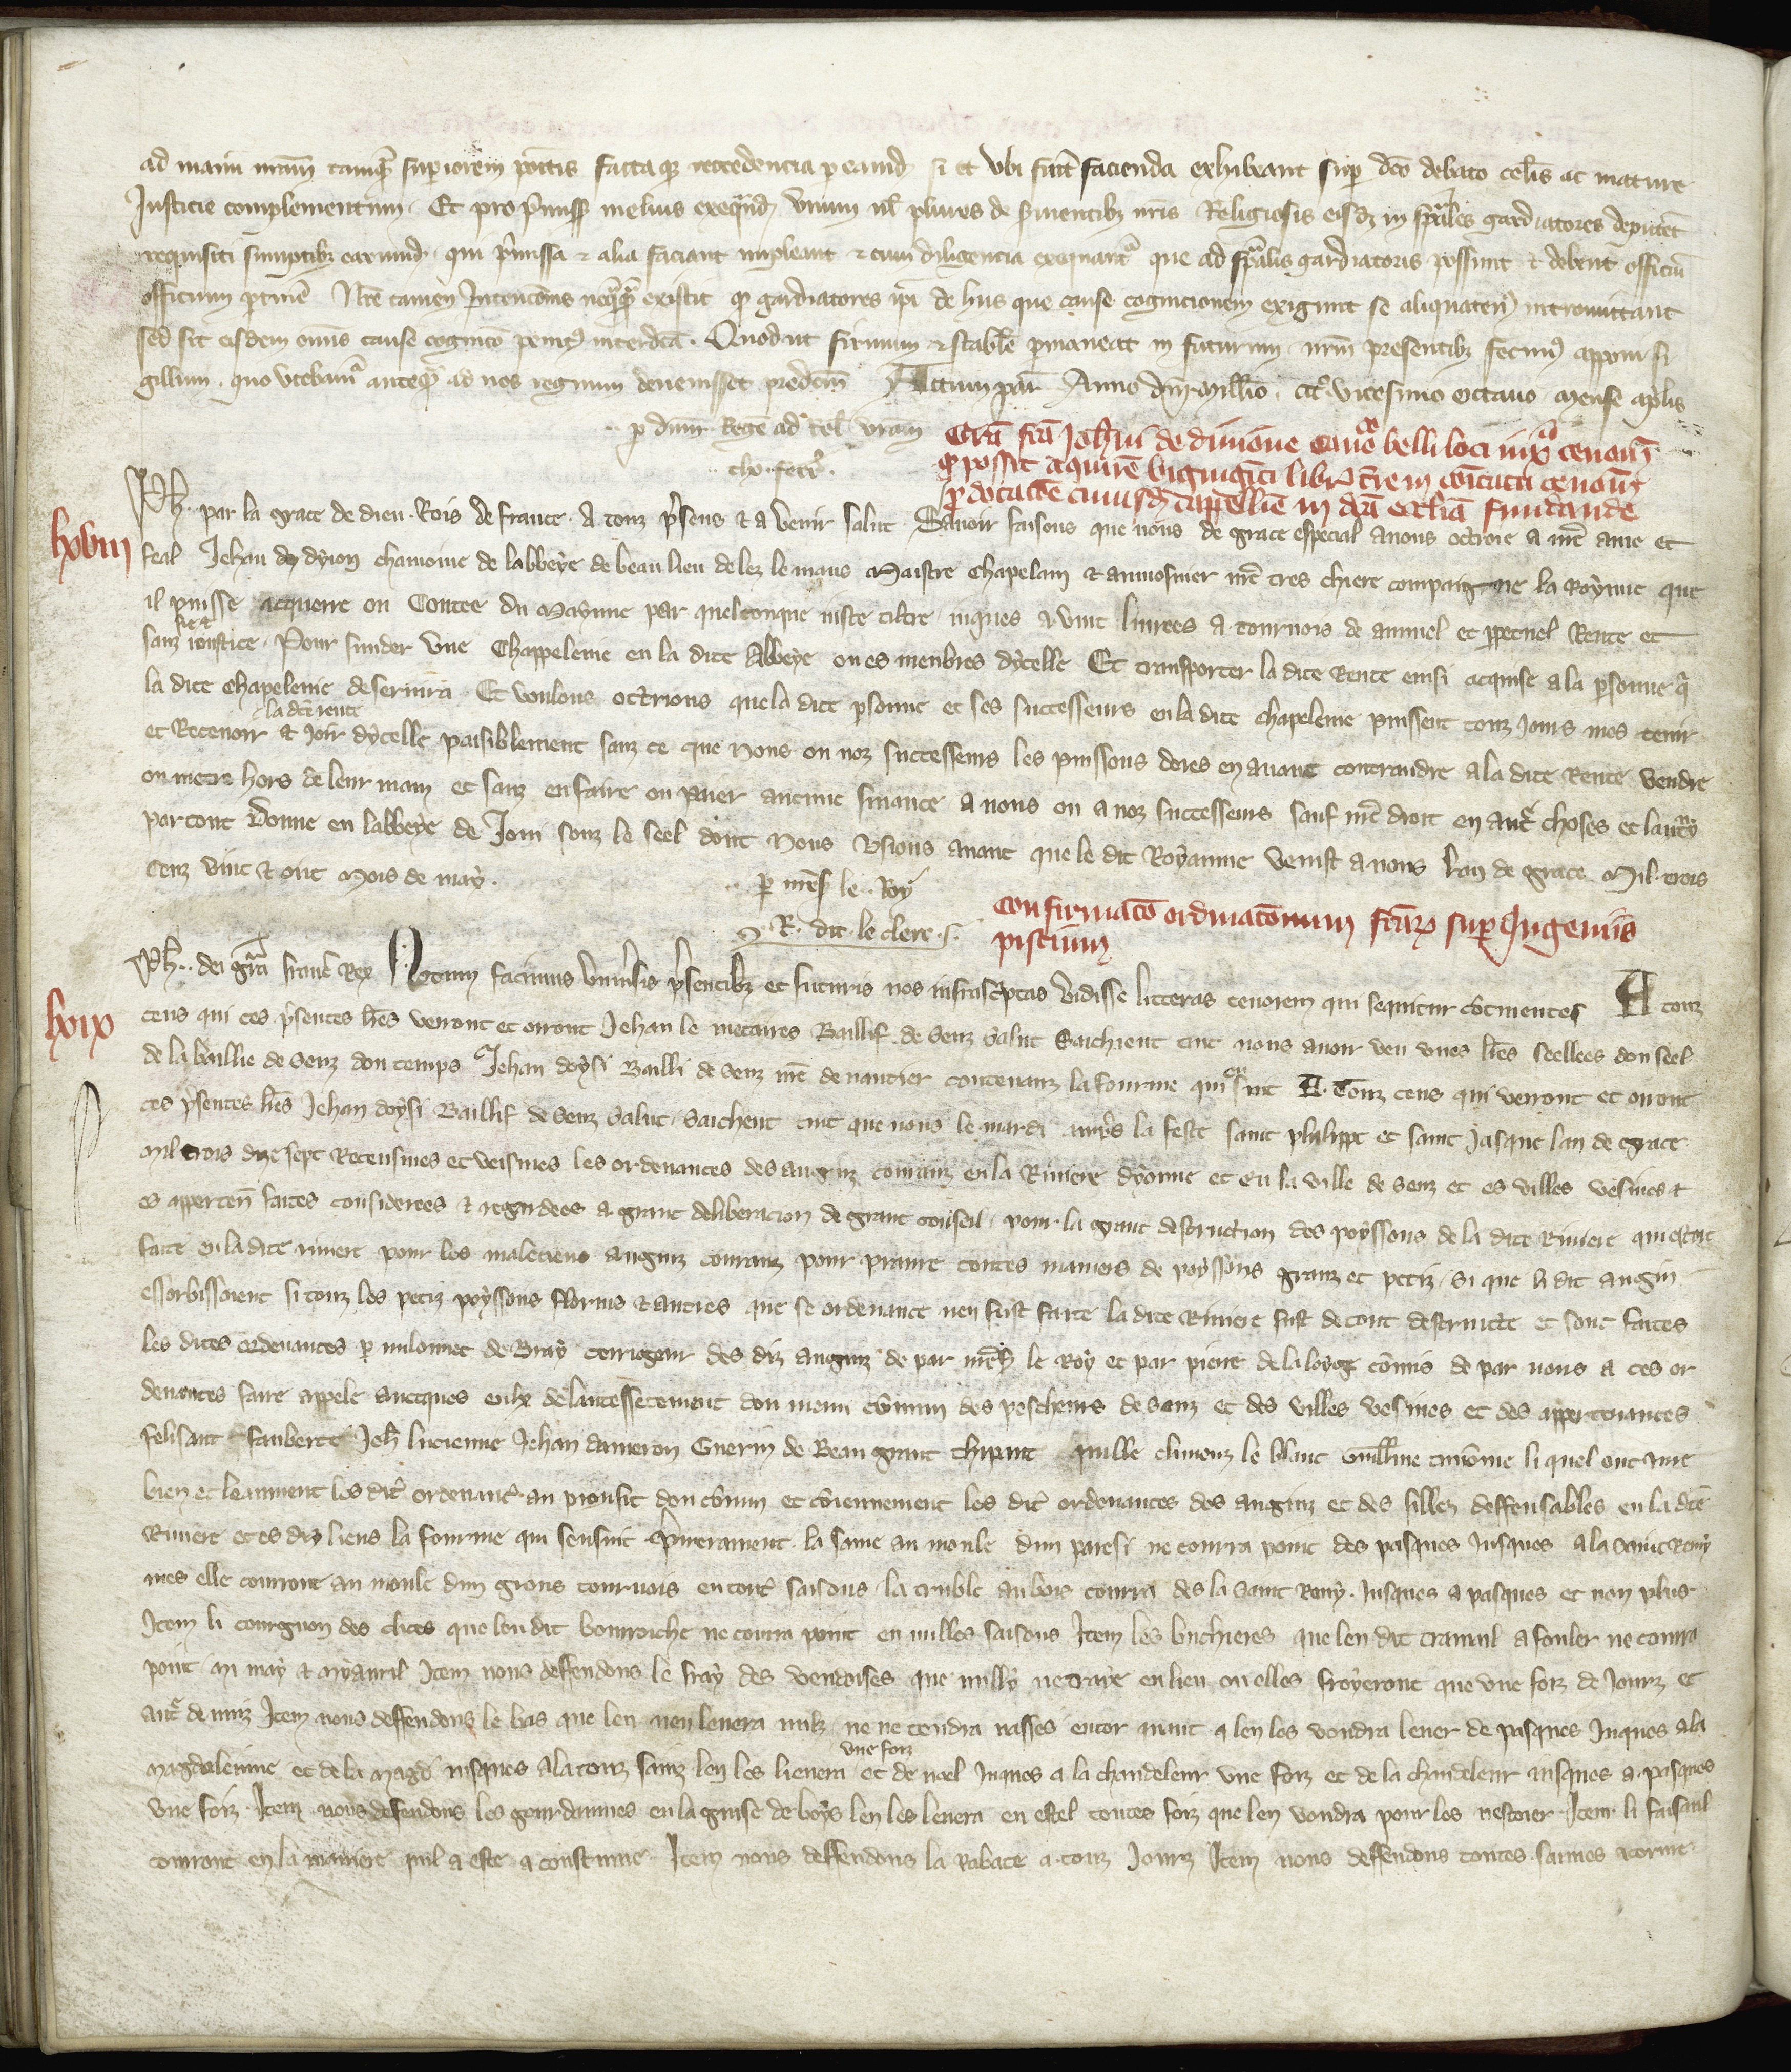 ad manū nr̄am tamq̄ superiorem positis factaq̨ recredencia p eamd̄ si et ubi fuīt facienda exhibeant sup dc̄o debato cel̄is ac mature
Justicie complementum. Et pro p̄miss̄ melius exeq̄nd̄ unum ul̄ plures de s̄vientib; nr̄is Religiosis eisd̄ in sp̄ales gardiatores deputēt
requisiti sumptib; earumd̄. qui p̄missa ⁊ alia faciant impleant ⁊ cum diligencia exequant̄ que ad sp̄alis gardiatoris possunt ⁊ debent officiū
officium p̱tinē Nr̄e tamen Intencōnis neq̄q̄ existit q̨ gardiatores ip̄i de hiis que cause cognicionem exigunt se aliquaten᾿ intromittant
sed sit eisdem om̄is cause cognicō penit᾿ interdc̄a. Quod ut firmum ⁊ stabile p̱maneat in futurum. nr̄m presentib; fecim᾿ apponi si
gillum. quo utebam̄ anteq̄ ad nos regnum devenisset predc̄m Actum par̄ Anno dn̄i Mill̄io. ccc̊ vicesimo octavo mense ap̄lis
p dn̄m Regē ad rel̄ vr̄am
Grā fr̄i Joh̄ni de divione cano belli loci iux̄ cenom̄
q̨ possit acquirē viginti libr̄ t̄re in comitatu cenom̄
p̱ dotacōe cuiusd̄ cappellīe in dc̄a eccl̄ia fundande
lxviii
Ph̄. par la grace de dieu. Rois de france. A touz p̄sens ⁊ a venir salut. Savoir faisons que nous de grace especial avons octroie a nr̄e ame et
feal Jehan de dyion chanoine de labbeye de beau lieu delez le mans Maistre Chapelain ⁊ aumosnier nr̄e tres chiere compaigne la Royne que
il puisse acquerre ou Contee du Mayne par quelconque iuste tiltre iuques a vint livrees a tournois de annuel et p̱petuel Rente et
sanz ioustice. Pour funder une Chappelenie en la dite Abbeye ou es menbres dycelle Et transporter la dite Rente einsi acquise a la p̱sonne q̄
la dite chapelenie deservira. Et voulons octrions que la dite p̱sonne et ses successeurs en la dite chapelenie puissent touz Jours mes tenir
la dc̄e rente
et Recevoir ⁊ Joir dycelle paisiblement sanz ce que Nous ou noz successeurs les puissons dores en avant contraindre a la dite Rente vendre
ou metre hors de leur main et sanz en faire ou paier aucune finance a nous ou a noz successeurs sauf nr̄e droit en aut̄s choses et lautruy
par tout Donne en labbeye de Joui souz le seel dont Nous usions avant que le dit Royaume venist a nous Lan de grace Mil. trois
cenz vint ⁊ oit Mois de may.
p̱ mes̄ le Roy
R. dit le clerc. s.
Confirmacō ordinacōnum fc̄ar̨ sup Ingeniis
piscium
lxix
Ph̄. dei gr̄a franc̄ Rex Notum facimus univ̄sis p̄sentib; et futuris nos infrascriptas vidisse litteras tenorem qui sequitur cōtinentes A touz
ceus qui ces p̄sentes l̄res verront et orront Jehan le metaires Baillif de Senz Salut Saichient tint nous avoir veu unes l̄res seellees don seel
de la baillie de Senz don temps Jehan doysi Bailli de Senz nr̄e devantier contenanz la fourme qui sen suit A Touz ceus qui verront et orront
ces p̄sentes l̄res Jehan doysi Baillif de Senz Salut. Saichent tuit que nous le mardi aup̄s la feste saint phelippe et saint Jasque lan de grace
Mil trois dix sept Receusmes et veismes les ordenances des anginz coranz en la Riviere dyonne et en la ville de Senz et es villes vesines ⁊
es apperten̄ faites considerees ⁊ regardees a grant deliberacion de grant conseil. pour la grant destruction des poyssons de la dite Riviere qui estoit
faite en la dite riviere pour les maleicieus anginz couranz pour prāure toutes manieres de poyssons granz et petiz. Si que li dit angin
essorbissoient si touz les petiz poyssons norris ⁊ autres que se ordenance nen fust faite la dite Riviere fust de tout destruicte et sont faites
les dites ordenances p̱ milonnet de Bray corrigeur des diz anginz de par nr̄es̄ le Roy et par pierre de la loyge cōmis de par nous a ces or
denances faire appele avecques eulx de lantessetement don menu cōmun des pescheurs de Senz et des villes vesines et des appertenances
felisaut Faubertt Jeh̄ Lucienne Jehan dameron Guerin de Beau grant thipaut quille climenz le blanc Guill̄me li quel ont iure
bien et leaument les dit̄ ordenanc̄ au prousit don cōmun et cōviennement les dit̄ ordenances des anginz et des filles deffensables en la dc̄e
Riviere et es diz lieus la fourme qui sensuit p̱mierement la sanne au monle dun paresi ne courra point des pasques Jusques a la Saint Remy
mes elle courront au monle dun grons tournois en tout̄ saisons. la truble au bois courra des la Saint Remy. Jusques a pasques et non plus
Item li courgnon des clices que len dit bourroiche ne courra point en nulles saisons Item les buchieres que len dit tramail a fouler ne courra
point mi may ⁊ myavril Item nous deffendons le fray des vendoises que nully ne traye en lieu ou elles froyeront que une foiz de Jourz et
aut̄ de nuiz Item nous deffendons le bas que len nen levera nulz ne ne tendra nasses entor avant q̄ len les vondra lever de pasques Jnques a la
une foiz
Magdaleinne et de la Magd̄ iusques a la touz sainz len les lievera et de noel Jnques a la chandeleur une foiz et de la chandeleur iusques a pasques
une foiz. Item nous defendons les gourdaunies en la guise de boys len les levera en estel toutes foiz que len vondra pour les nestoier. Item li faisaul
courront en la maniere quil a este a coustume Item nous deffendons la rabace a touz Jourz Item nous deffendons toutes saines atorme